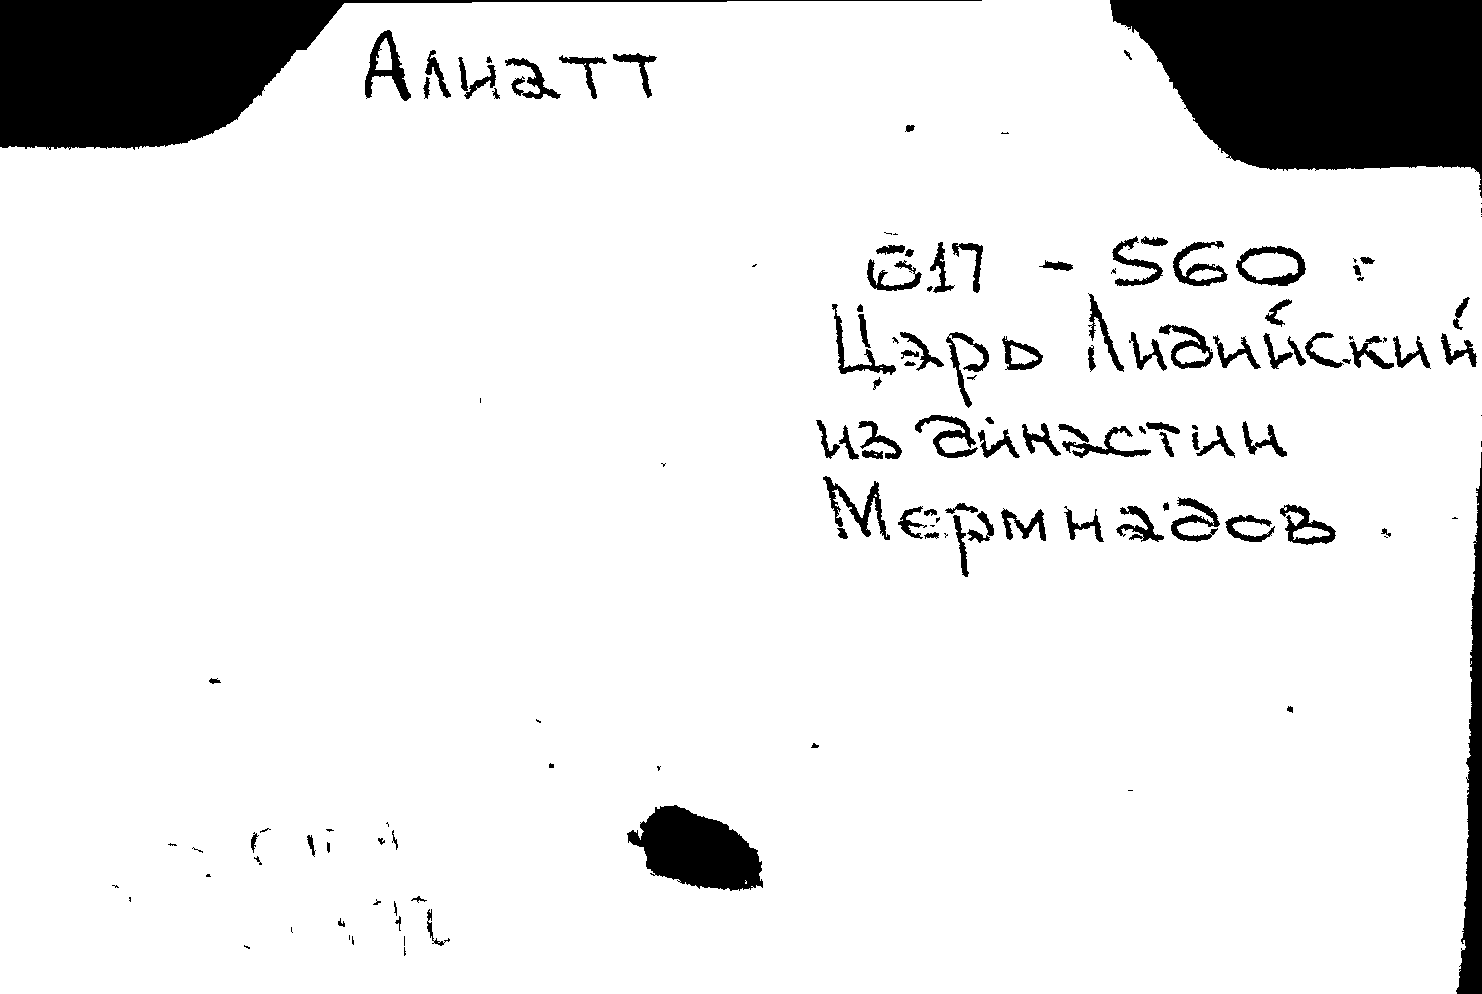 Алиатт
617 - 560 г
Царь Лидийский
из династии
Мермнадов.